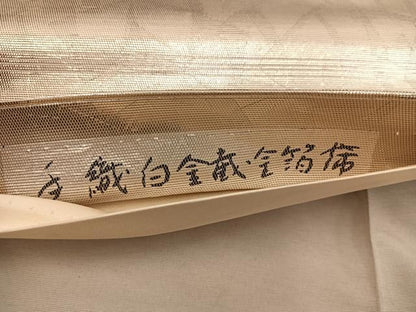 手織白金截金箔佛